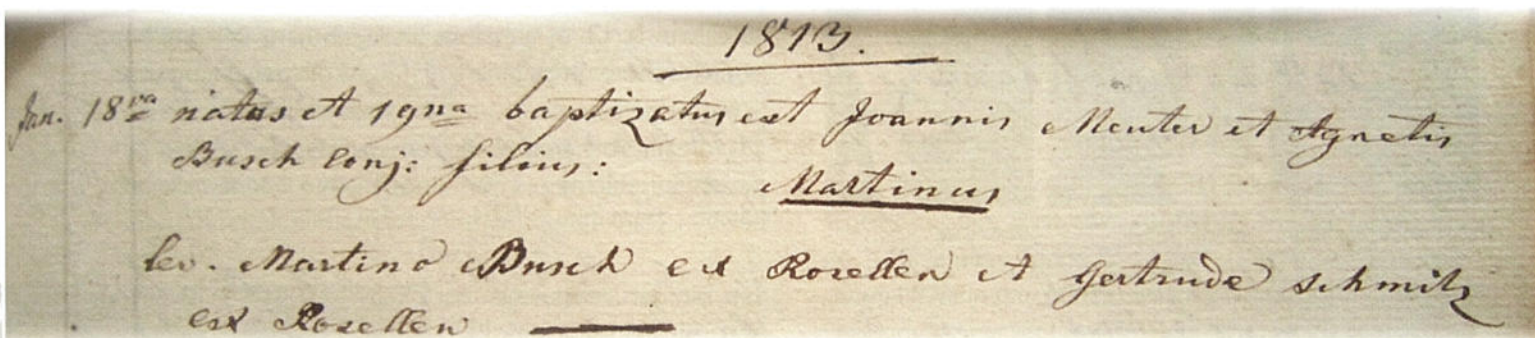 1813.
Jan. 18va natus et 19na baptizatus est Joannis Meuter et Agnetis
Busch Conj: filius:
Martinus
lev. Martino Busch ex Rosellen et Gertrude Schmitz
ex Rosellen